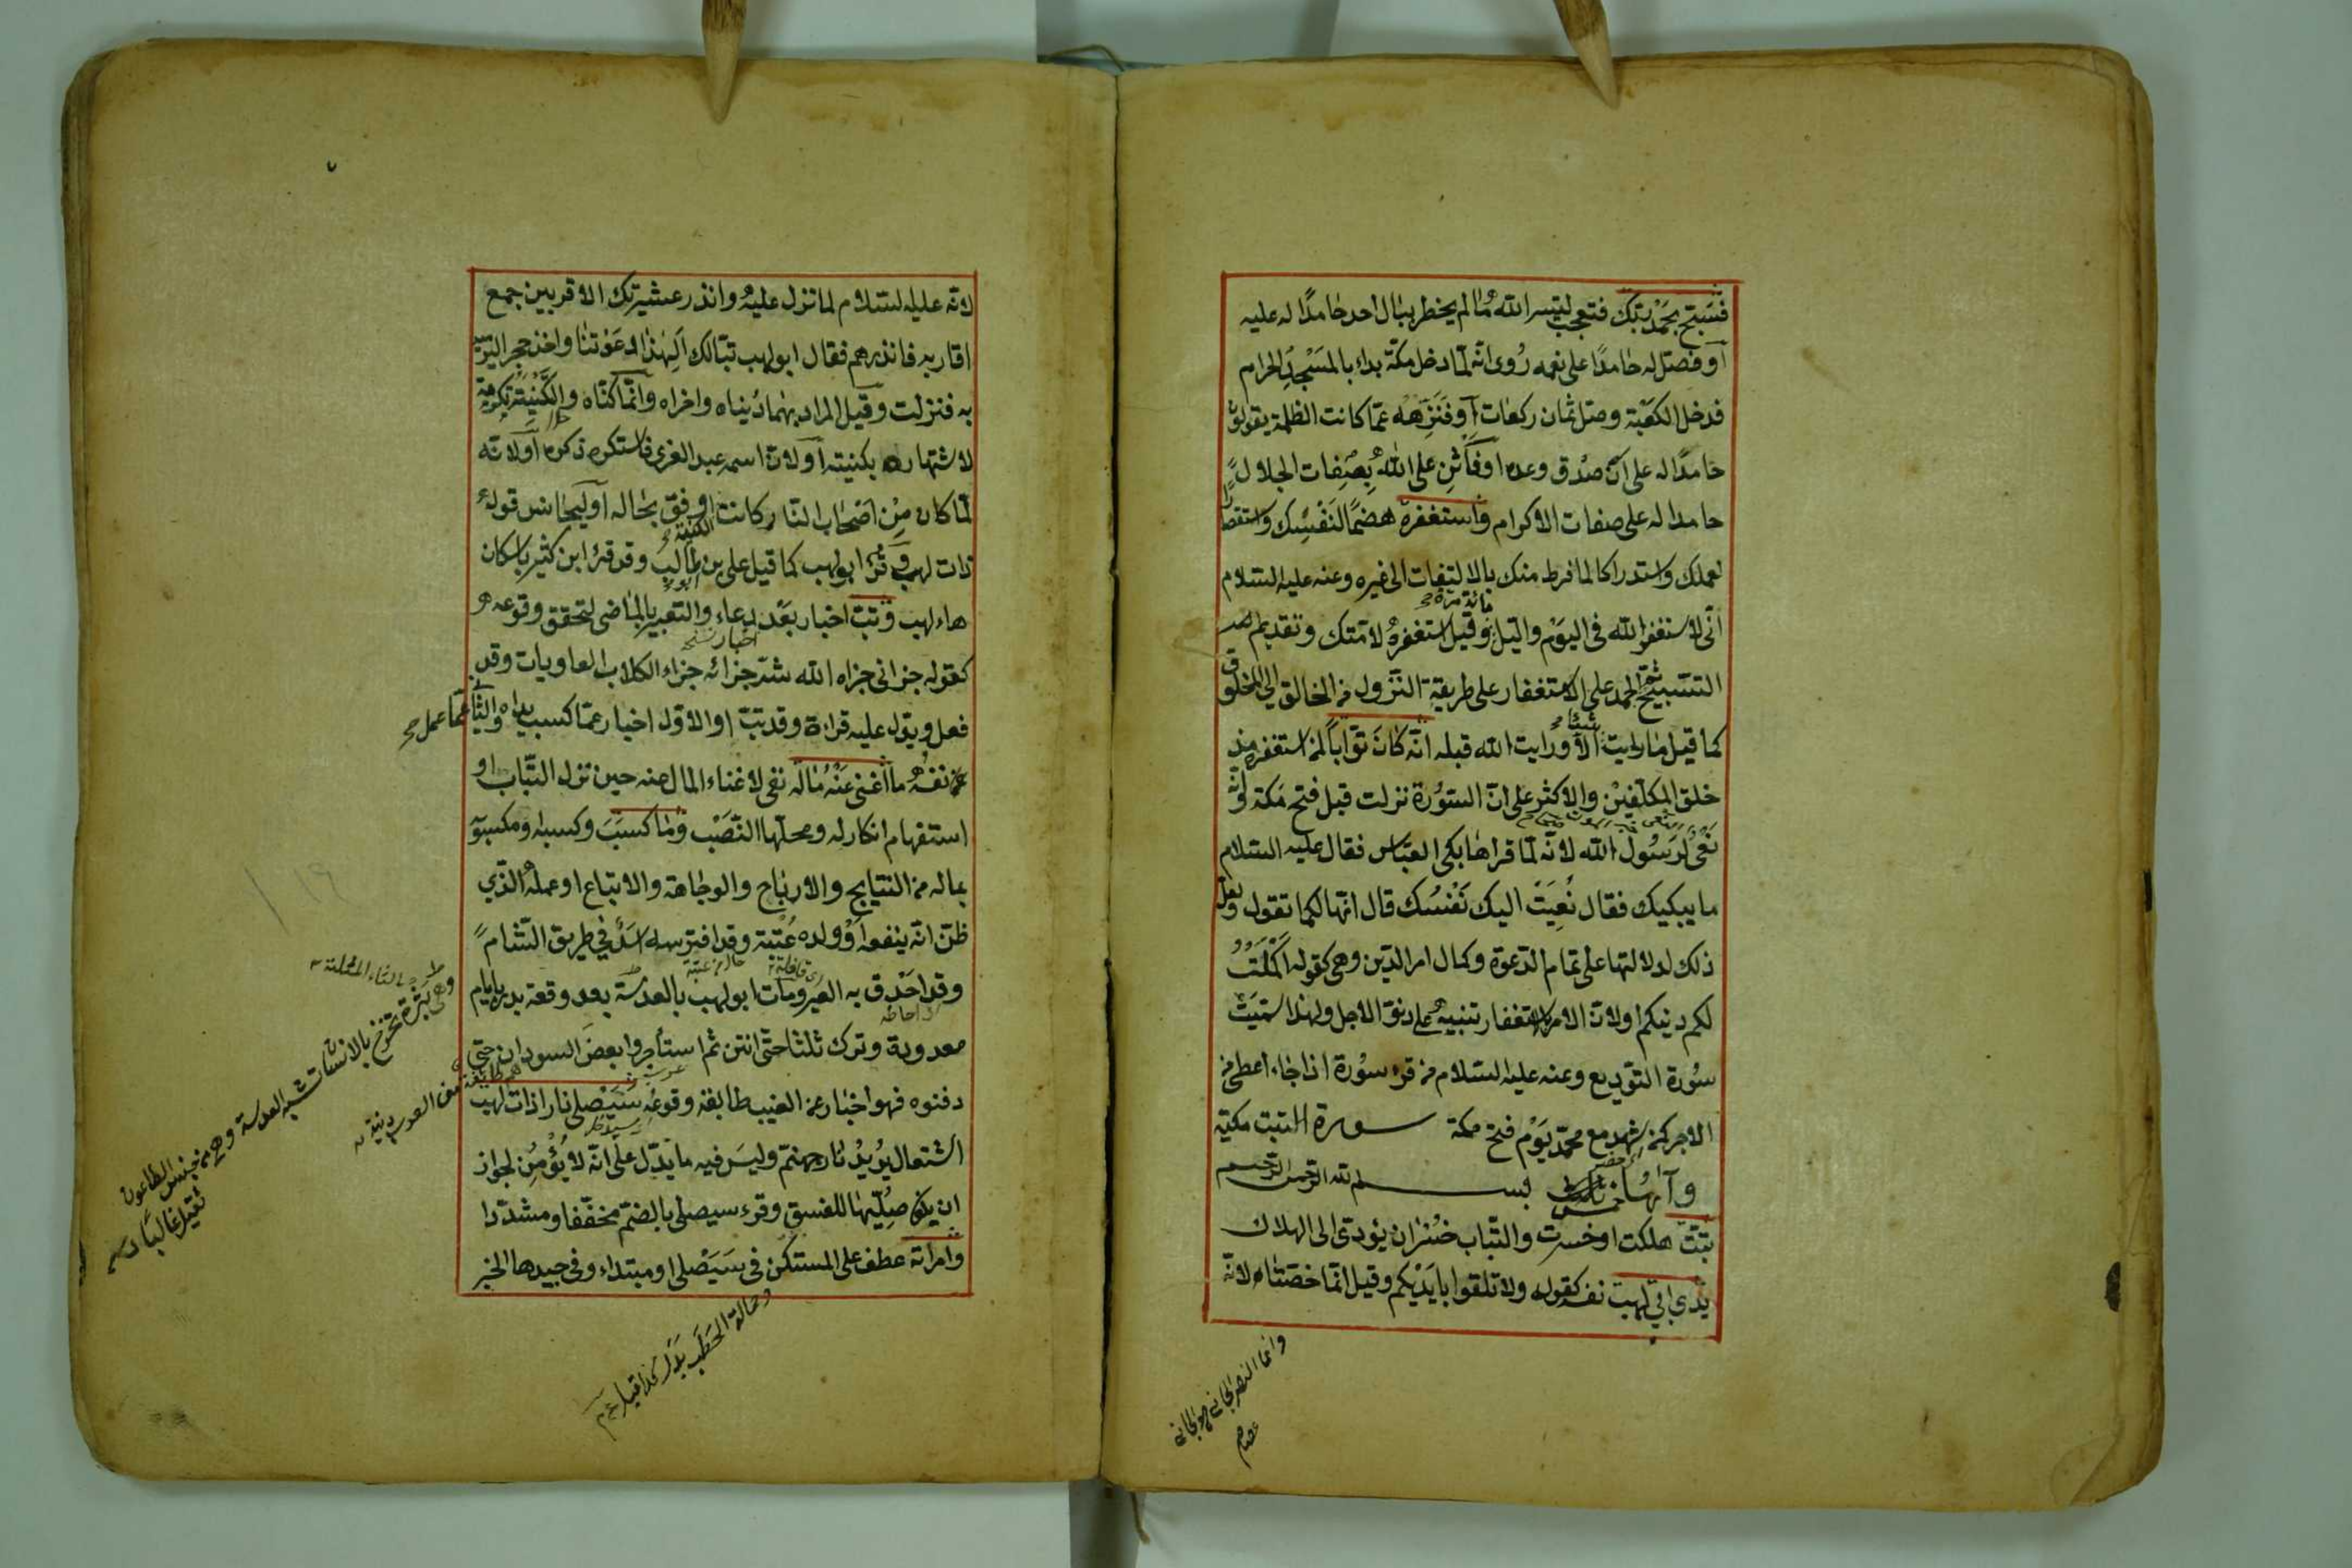 فسبح بحمد ربك فتعجب لتيسر الله ما لم يخطر ببال احد حامدا له عليه
او فصل له حامدا على نعمه روى انه لما دخل مكة بداء بالمسجد الحرام
فدخل الكعبة وصلى ثمان ركعات او فنزهه عما كانت الظلمة يقولون
حامدا له على ان صدق وعده او فاثن على الله بصفات الجلال
حامدا له على صفات الاكرام واستغفره هضما لنفسك واستقصارا
لعملك واستدراكا لما فرط منك بالالتفات الى غيره وعنه عليه السلام
انى لاستغفر الله فى اليوم والليل مائة مرة وقيل استغفره لامتك وتقديم
التسبيح ثم الحمد على الاستغفار على طريقة النزول من الخالق الى الخلق
كما قيل ما رايت شيئا الا ورايت الله قبله انه كان توابا لمن استغفره منذ
خلق المكلفين والاكثر على ان السورة نزلت قبل فتح مكة وانه
نعى لرسول الله لانه لما قراها بكى العباس فقال عليه السلام
ما يبكيك فقال نعيت اليك نفسك قال انها لكما تقول ولعل
ذلك لدلالتها على تمام الدعوة وكمال امر الدين وهى كقوله اكملت
لكم دينكم اولان الامر بالاستغفار تنبيه على دنو الاجل ولهذا سميت
سورة التوديع وعنه عليه السلام من قرء سورة اذا جاء اعطى من
الاجر كمن شهد مع محمد يوم فتح مكة سورة التبت مكية
وآيها خمس بسم الله الرحمن الرحيم
تبت هلكت او خسرت والتباب خسران يؤدى الى الهلاك
يدى ابى لهب نفسه كقوله ولا تلقوا بايديكم وقيل انما خصتا لانه
وانما النصر
عصام
لانه عليه السلام لما نزل عليه وانذر عشيرتك الاقربين جمع
اقاربه فانذرهم فقال ابو لهب تبا لك الهذا دعوتنا واخذ حجرا ليرميه
به فنزلت وقيل المراد بهما دنياه واخراه وانما كناه والكنية تكرمة
لاشتهاره بكنيته او لان اسمه عبد العزى فاستكره ذكره اولانه
لما كان من اصحاب النار كانت الكنية اوفق بحاله او ليجانس قوله
ذات لهب وقرئ ابو لهب كما قيل على بن ابو طالب وقد قرئ ابن كثير باسكان
هاء لهب وتب اخبار بعد دعاء والتعبير بالماضى لتحقق وقوعه
كقوله جزانى جزاه الله شر جزائه جزاء الكلاب العاويات وقد
فعل ويدل عليه قراءة وقد تب او الاول اخبار عما كسبت يداه والثانى عما عمل
عن نفسه ما اغنى عنه ماله نفى لاغناء المال عنه حين نزل التباب او
استفهام انكار له ومحلها النصب وما كسب وكسبه ومكسوبه
بماله من النتايج والارباح والوجاهة والاتباع او عمله الذى
ظن انه ينفعه او ولده عتبة وقد افترسه اسد فى طريق الشام
وقد احدق به العير ومات ابو لهب بالعدسة بعد وقعة بدر بايام
معدودة وترك ثلثا حتى انتن ثم استأجروا بعض السودان حتى
دفنوه فهو اخبار عن الغيب طابقه وقوعه سيصلى نارا ذات لهب
اشتعال يريد نار جهنم وليس فيه ما يدل على انه لا يؤمن لجواز
ان يكون صليها للفسق وقرء سيصلى بالضم مخففا ومشددا
وامرأته عطف على المستكن فى سيصلى او مبتداء وفى جيدها الخبر
وهى بثرة تخرج بالانسان شبه العدسة وهى من جنس الطاعون
تقتل غالبا
وحمالة الحطب بدل كذا قيل